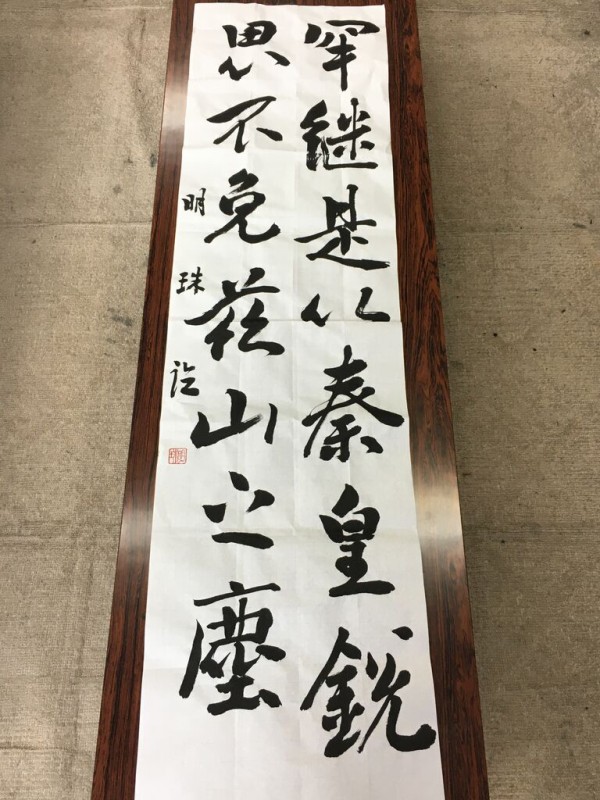 罕継是以秦皇鋭
思不免茲山之塵
明珠